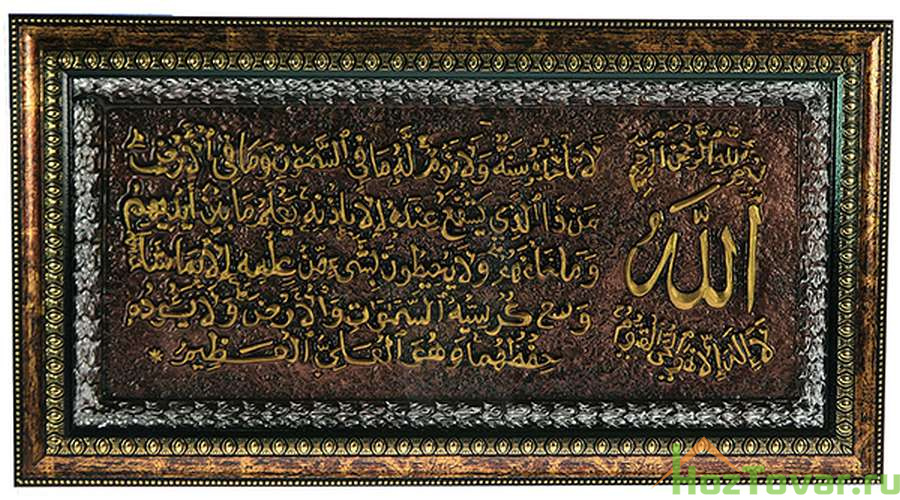 بسم الله الرحمن الرحيم
الله
لا اله الا هو الحي القيوم
لا تأخذه سنة ولا نوم له ما في السموت وما في الارض
من ذا الذي يشفع عنده الا باذنه يعلم ما بين ايديهم
وما خلفهم ولا يحيطون بشيء من علمه الا بما شاء
وسع كرسيه السموت والارض ولا يؤده
حفظهما وهو العلي العظيم
HozTovar.ru